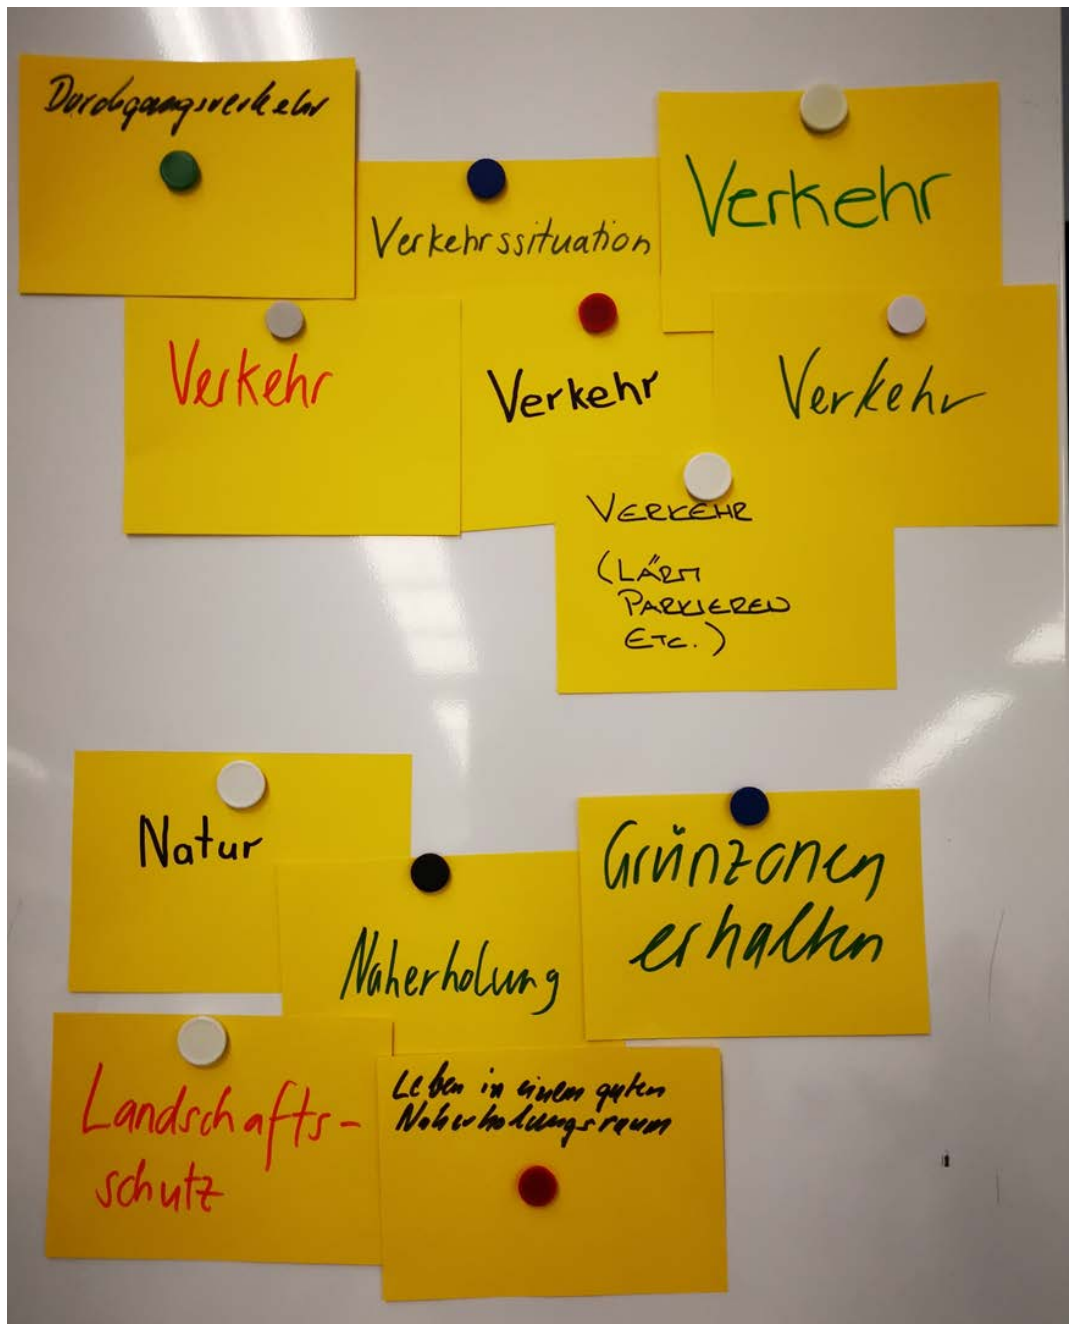 Durchgangsverkehr
Verkehrssituation
Verkehr
Verkehr
Verkehr
Verkehr
VERKEHR
(LÄRM
PARKIEREN
ETC.)
Natur
Naherholung
Grünzonen
erhalten
Landschafts-
schutz
Leben in einem guten
Naherholungsraum